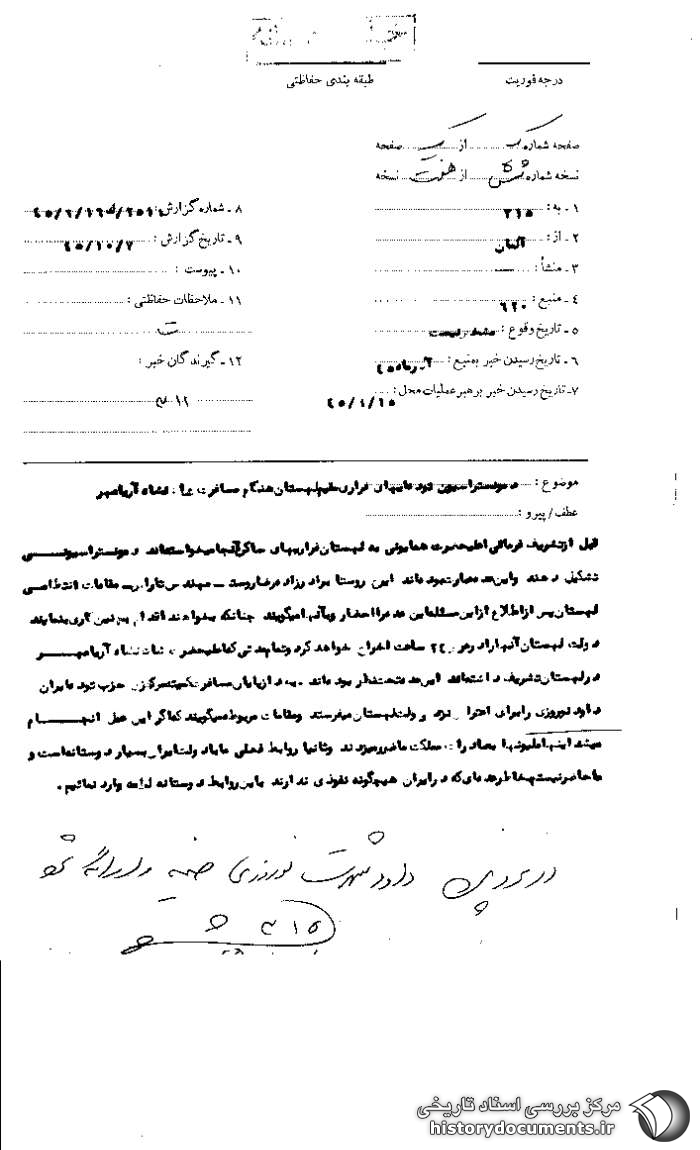 درجه فوریت
طبقه بندی حفاظتی
صفحه شماره یک از یک صفحه
نسخه شماره شش از هفت نسخه
۱ـ به : ۳۱۵
۲ـ از : آلمان
۳ـ منشأ :
۴ـ منبع : ۶۲۰
۵ـ تاریخ وقوع : مشخص نیست
۶ـ تاریخ رسیدن خبر بمنبع :
۷ـ تاریخ رسیدن خبر برهبر عملیات محل :
۸ـ شماره گزارش :
۹ـ تاریخ گزارش : ۴۵/۱۰/۷
۱۰ـ پیوست :
۱۱ـ ملاحظات حفاظتی :
۱۲ـ گیرندگان خبر :
موضوع : دمونستراسیون توده‌ایهای فراری مقیم لهستان هنگام مسافرت شاهنشاه آریامهر
عطف/پیرو :
قبل از تشریف فرمائی اعلیحضرت همایونی به لهستان فراریهای ساکن آنجا میخواسته‌اند دمونستراسیونی
تشکیل دهند و این عده عبارت بوده‌اند از روستا برادر زاده رضا روستا ـ مهندس تارا ـ مقامات انتظامی
لهستان پس از اطلاع از این مسئله این عده را احضار و بآنها میگویند چنانکه بخواهند اقدام بچنین کاری بنمایند
دولت لهستان آنها را در ۲۴ ساعت اخراج خواهد کرد و تمام مدتی که اعلیحضرت شاهنشاه آریامهر
در لهستان تشریف داشته‌اند این عده تحت نظر بوده‌اند . بعد از پایان مسافرت کمیته مرکزی حزب توده ایران
داود نوروزی را برای اعتراض نزد دولت لهستان میفرستد و مقامات مربوطه میگویند که اگر این عمل انجام
میشد اینها مملکت ما ضرر میزدند و ثانیا روابط فعلی ما با دولت ایران بسیار دوستانه است و
ما حاضر نیستیم بخاطر عده‌ای که در ایران هیچگونه نفوذی ندارند باین روابط دوستانه لطمه وارد نمائیم .
داود نوروزی ضمیمه و ارائه شود
مرکز بررسی اسناد تاریخی
historydocuments.ir